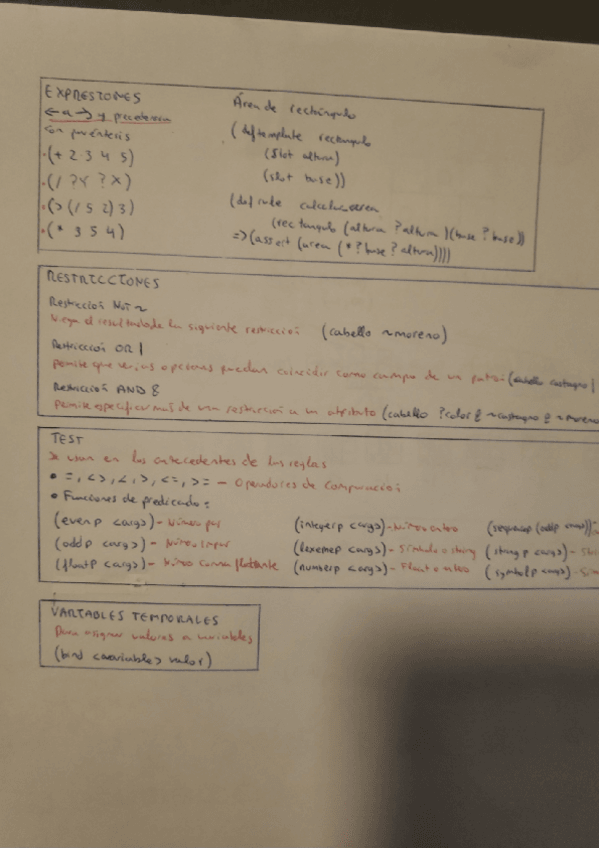 EXPRESIONES
← a → y precedencia
con paréntesis
·(+ 2 3 4 5)
·(/ ?Y ?X)
·(> (/ 5 2) 3)
·(* 3 5 4)
Área de rectángulo
(deftemplate rectangulo
(slot altura)
(slot base))
(defrule
(rectangulo (altura ?altura)(base ?base))
=>(assert (area (* ?base ?altura))))
RESTRICCIONES
Restricción NOT ~
Niega el resultado de la siguiente restricción (cabello ~moreno)
Restricción OR |
Permite que varias opciones puedan coincidir como campo de un patrón (cabello castagno |
Restricción AND &
Permite especificar más de una restricción a un atributo (cabello ?color & ~castagno & ~moreno
TEST
Se usan en los antecedentes de las reglas
• =, <>, <, >, <=, >= - Operadores de comparación
• Funciones de predicado:
(evenp <arg>) - Número par (integerp <arg>) - Número entero
(oddp <arg>) - Número impar (lexemep <arg>) - Símbolo o string (stringp <arg>) -
(floatp <arg>) - Número coma flotante (numberp <arg>) - Float o entero (symbolp <arg>) -
VARIABLES TEMPORALES
Para asignar valores a variables
(bind <variable> valor)